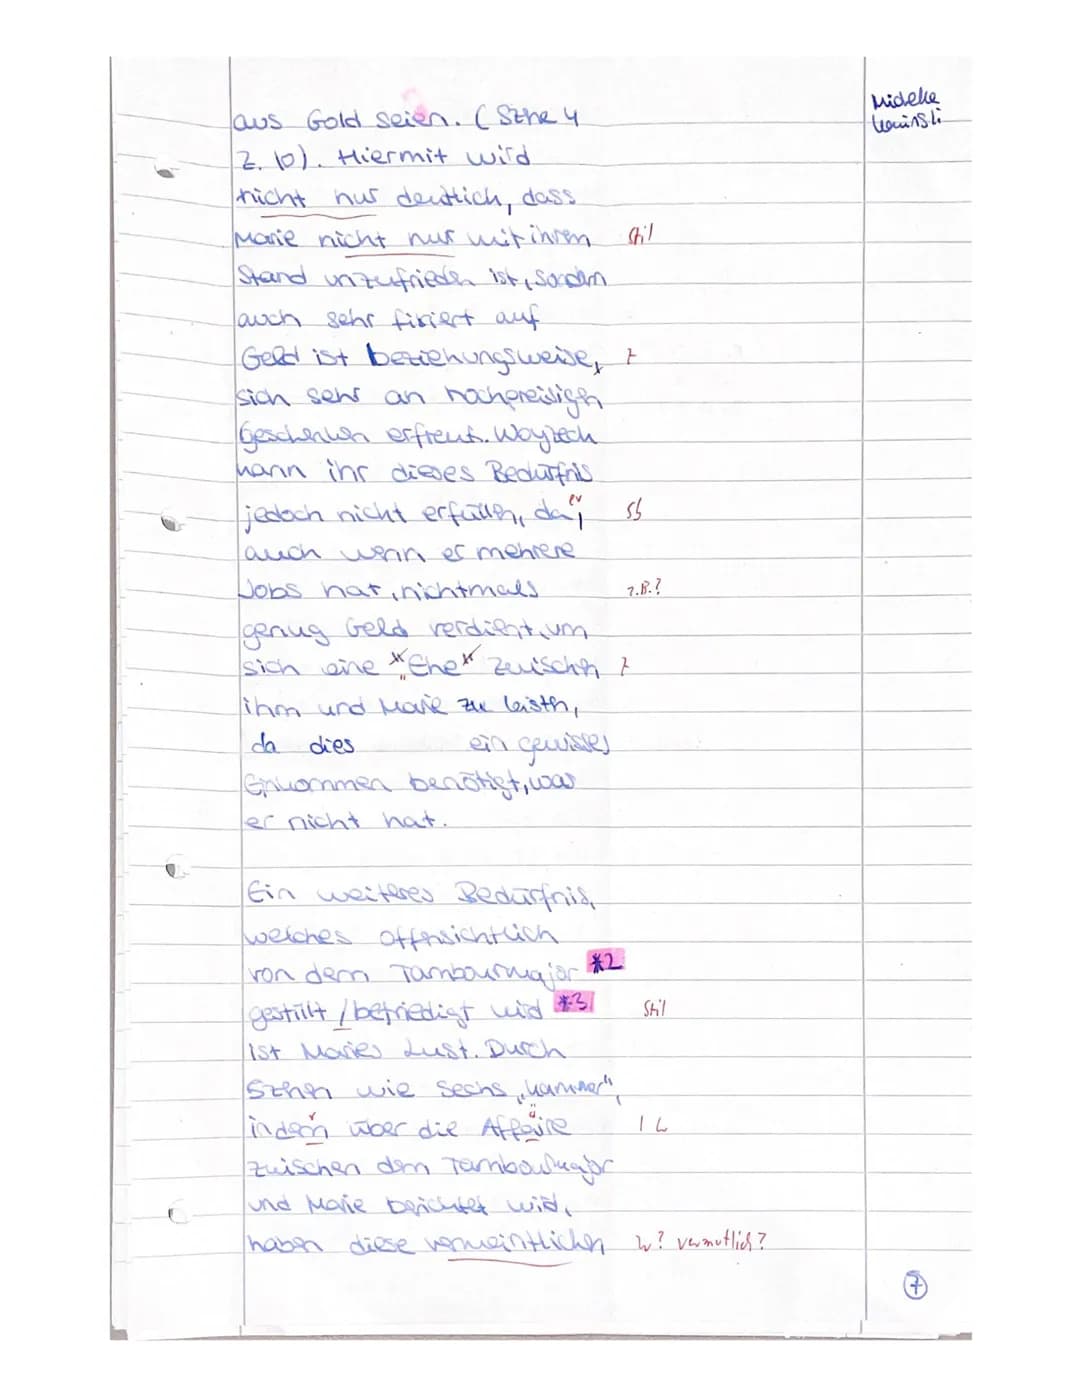 aus Gold seien. (Szene 4
Z. 10). Hiermit wird
nicht nur deutlich, dass
Marie nicht nur mit ihrem Stil
Stand unzufrieden ist, sondern
auch sehr fixiert auf
Geld ist beziehungsweise, Z
sich sehr an hochpreisigen
Geschenken erfreut. Woyzeck
kann ihr dieses Bedürfnis
jedoch nicht erfüllen, da er, Sb
auch wenn er mehrere
Jobs hat, nichtmals z.B.?
genug Geld verdient, um
sich eine "Ehe" zwischen Z
ihm und Marie zu leisten,
da dies ein gewisses
Einkommen benötigt, was
er nicht hat.
Ein weiteres Bedürfnis,
welches offensichtlich
von dem Tambourmajor *2
gestillt / befriedigt wird *3 Stil
ist Maries Lust. Durch
Szenen wie Sechs „kammer",
indem r über die Affaire ä
zwischen dem Tambourmajor
und Marie berichtet wird,
haben diese vermeintlichen W? vermutlich?
Michelle
7